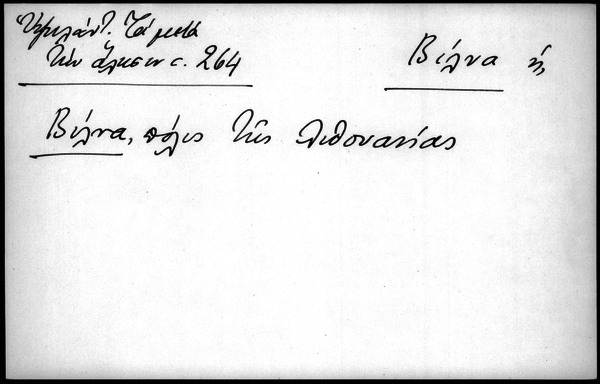 Ὑψηλάντ. Τὰ μετὰ
τὴν ἅλωσιν σ. 264
Βίλνα ἡ
Βίλνα, πόλις τῆς Λιθουανίας